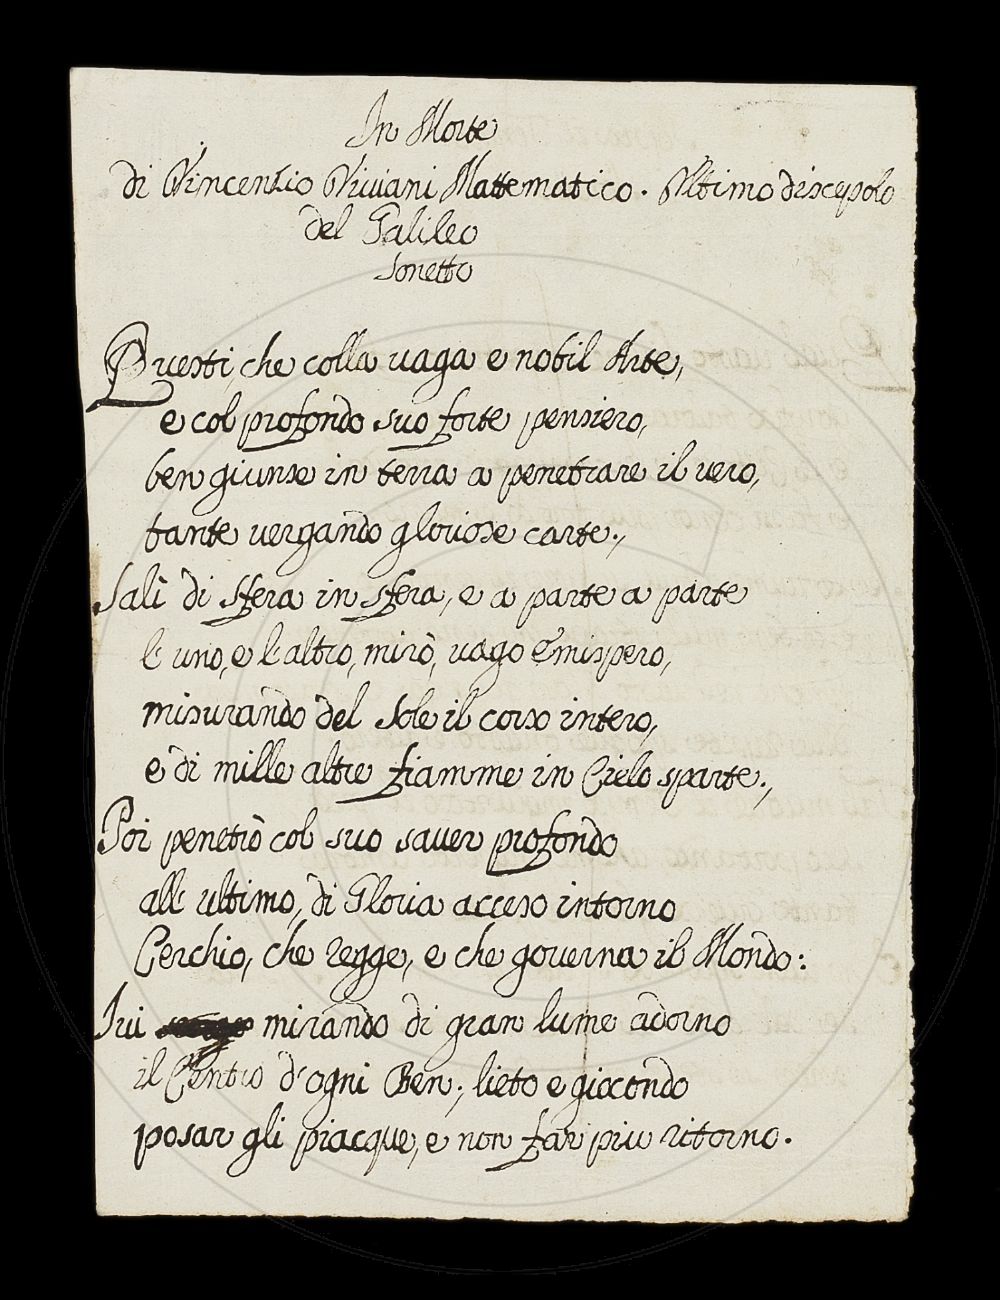 In Morte
di Vincenzio Viviani Mattematico. Ultimo discepolo
del Galileo
Sonetto
Questi, che colla vaga e nobil Arte,
e col profondo suo forte pensiero,
ben giunse in terra a penetrare il vero,
tante vergando gloriose carte.,
Salì di sfera in sfera, e a parte a parte
l'uno, e l'altro, mirò, vago Emispero,
misurando del Sole il corso intero,
e di mille altre fiamme in Cielo sparte.,
Poi penetrò col suo saver profondo
all'ultimo, di Gloria acceso intorno
Cerchio, che regge, e che governa il Mondo:
Ivi mirando di gran lume adorno
il Centro d'ogni Ben., lieto e giocondo
posar gli piacque, e non far piu ritorno.